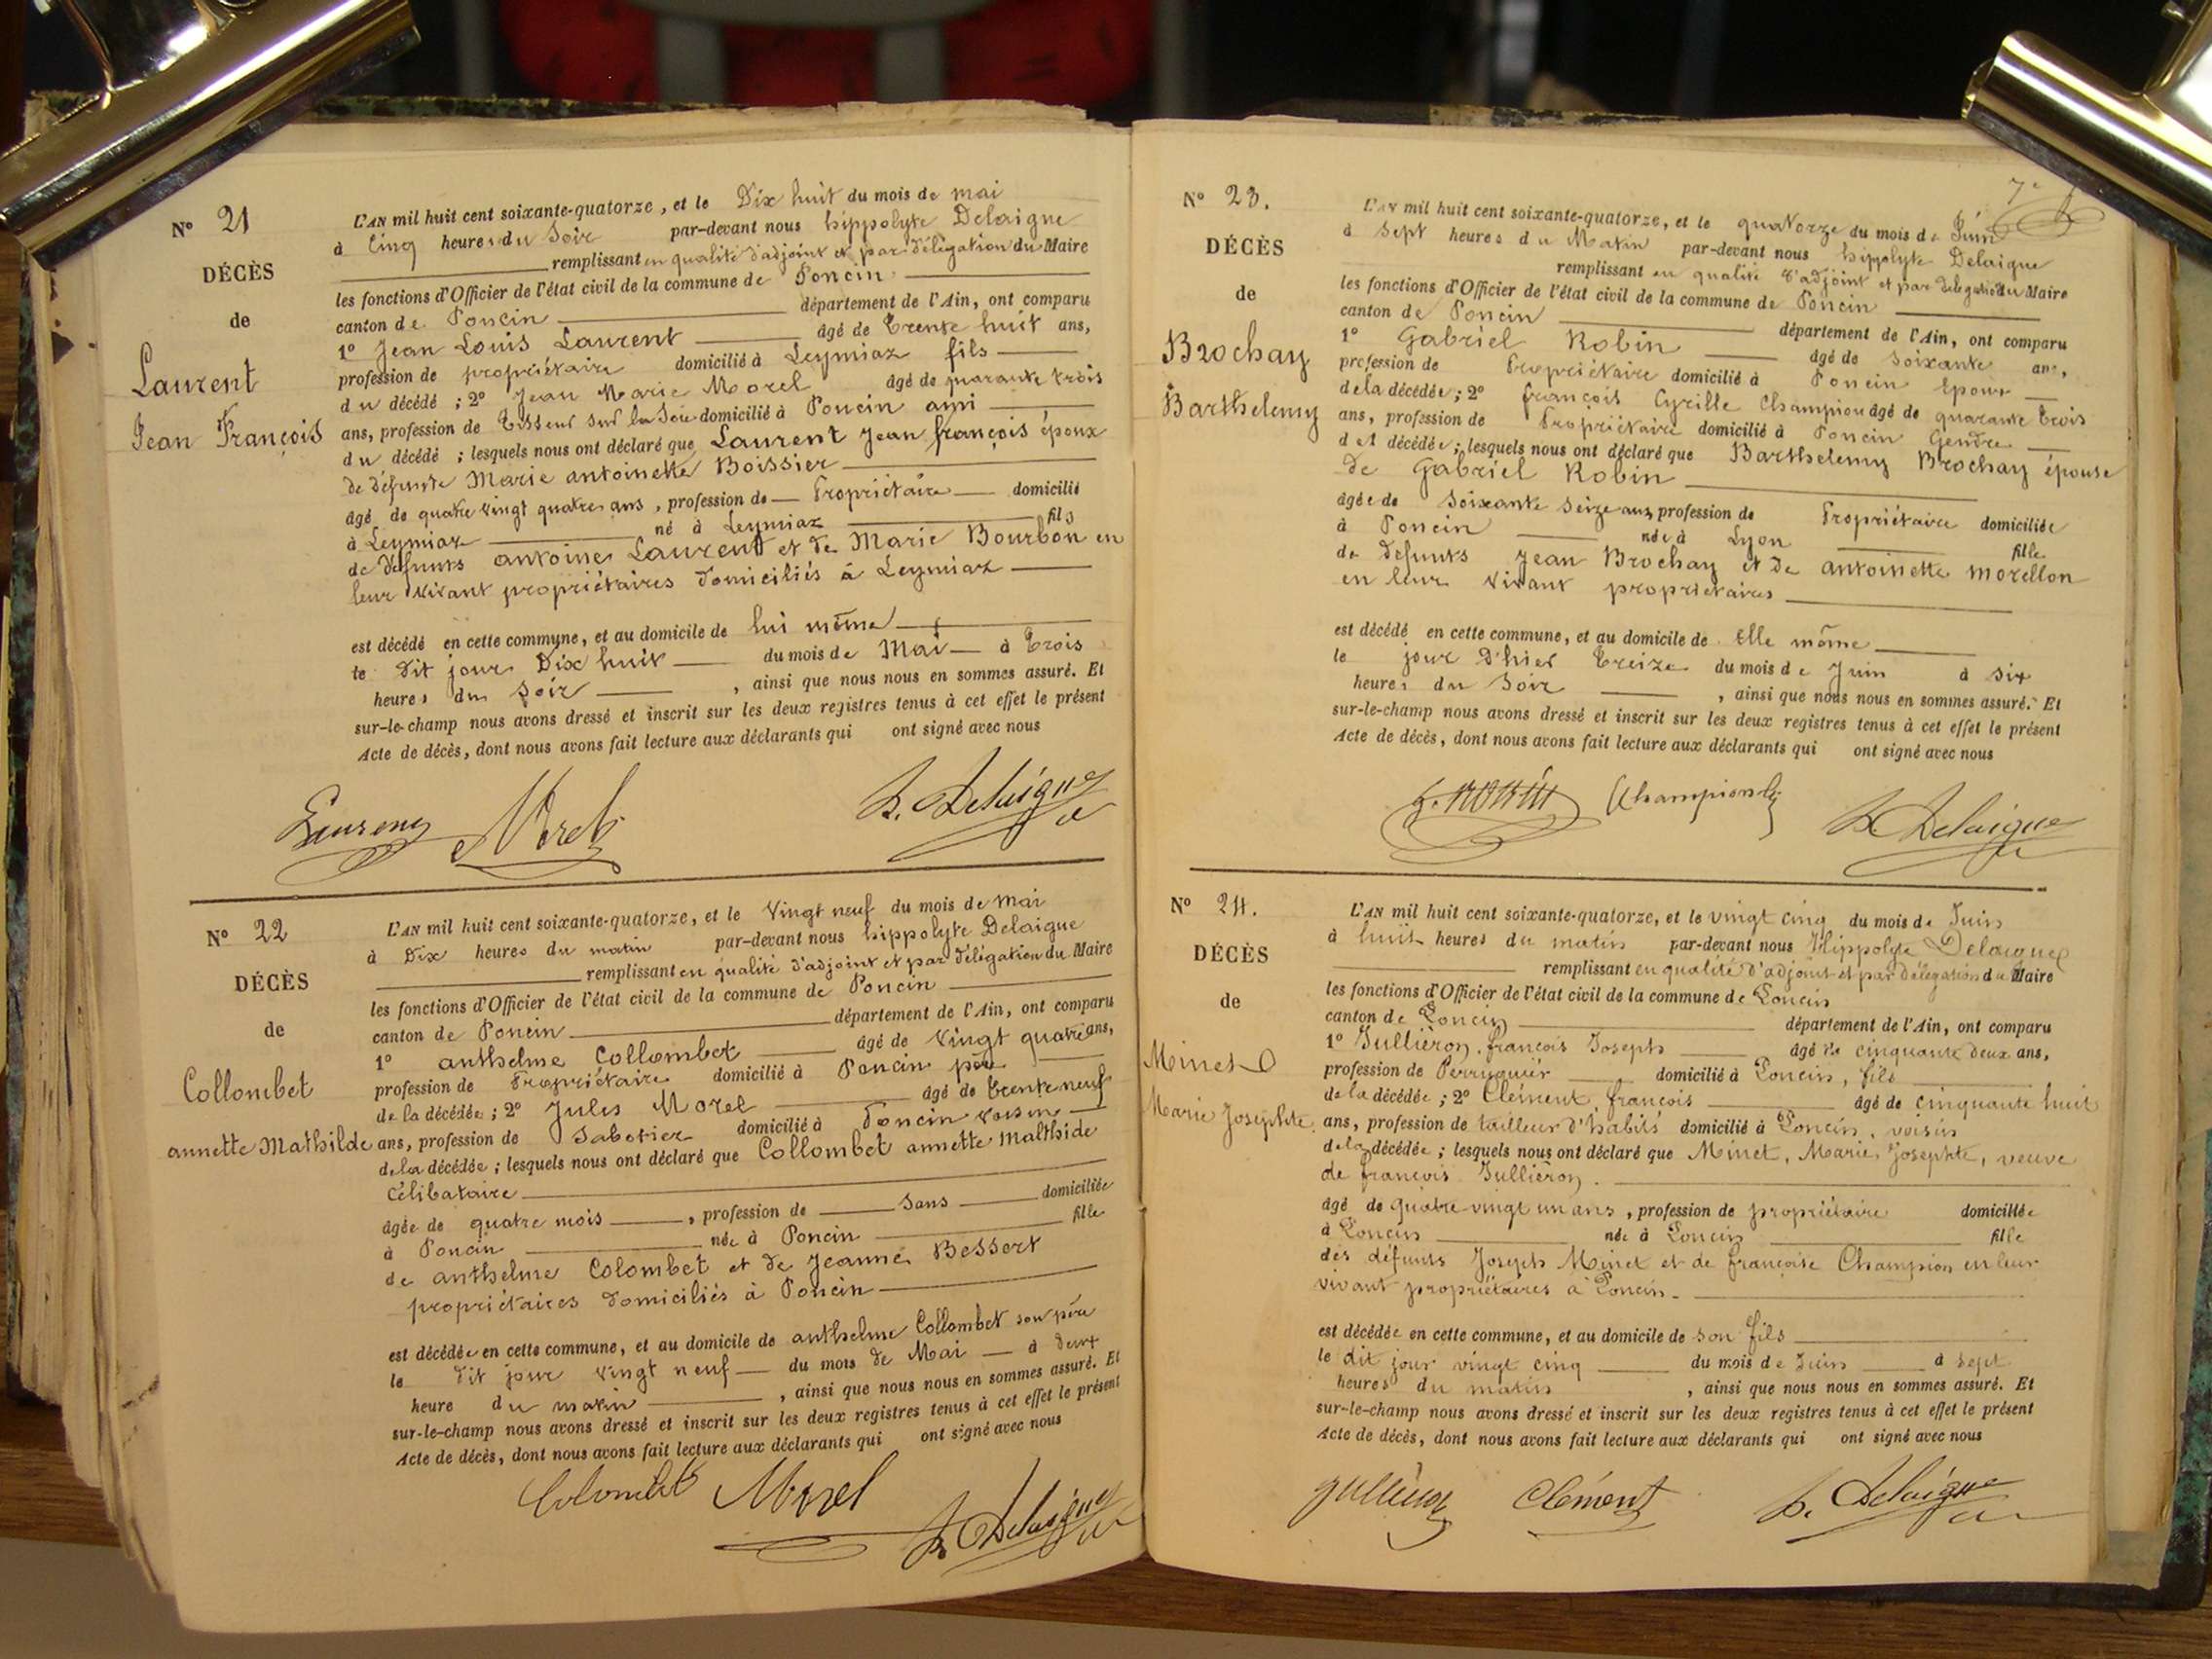 N° 21
DÉCÈS
de
Laurent
Jean François
L'AN mil huit cent soixante-quatorze, et le Dix huit du mois de mai
à Cinq heures du Soir par-devant nous hippolyte Delaigne
remplissant en qualité d'adjoint et par délégation du Maire
les fonctions d'Officier de l'état civil de la commune de Poncin
canton de Poncin département de l'Ain, ont comparu
1° Jean Louis Laurent âgé de trente huit ans,
profession de propriétaire domicilié à Leymiaz fils
du décédé ; 2° Jean Marie Morel âgé de quarante trois
ans, profession de Tisseur sur la Soie domicilié à Poncin ami
du décédé ; lesquels nous ont déclaré que Laurent Jean françois époux
de défunte Marie antoinette Boissier
âgé de quatre vingt quatre ans, profession de Propriétaire domicilié
à Leymiaz né à Leymiaz fils
de défunts antoine Laurent et de Marie Bourbon en
leur vivant propriétaires domiciliés à Leymiaz
est décédé en cette commune, et au domicile de lui même
le dit jour Dix huit du mois de Mai à Trois
heures du Soir , ainsi que nous nous en sommes assuré. Et
sur-le-champ nous avons dressé et inscrit sur les deux registres tenus à cet effet le présent
Acte de décès, dont nous avons fait lecture aux déclarants qui ont signé avec nous
Laurent Morel h. Delaigue
N° 22
DÉCÈS
de
Collombet
annette Mathilde
L'AN mil huit cent soixante-quatorze, et le Vingt neuf du mois de Mai
à Dix heures du matin par-devant nous hippolyte Delaigue
remplissant en qualité d'adjoint et par délégation du Maire
les fonctions d'Officier de l'état civil de la commune de Poncin
canton de Poncin département de l'Ain, ont comparu
1° anthelme Collombet âgé de Vingt quatre ans,
profession de Propriétaire domicilié à Poncin père
de la décédée ; 2° Jules Morel âgé de trente neuf
ans, profession de Sabotier domicilié à Poncin voisin
de la décédée ; lesquels nous ont déclaré que Collombet annette Malthide
Célibataire
âgée de quatre mois , profession de Sans domiciliée
à Poncin née à Poncin fille
de anthelme Colombet et de Jeanne Bessert
propriétaires domiciliés à Poncin
est décédée en cette commune, et au domicile de anthelme Collombet son père
le dit jour vingt neuf du mois de Mai à deux
heure du matin , ainsi que nous nous en sommes assuré. Et
sur-le-champ nous avons dressé et inscrit sur les deux registres tenus à cet effet le présent
Acte de décès, dont nous avons fait lecture aux déclarants qui ont signé avec nous
Colombet Morel h. Delaigue
7e
N° 23.
DÉCÈS
de
Brochay
Barthelemy
L'AN mil huit cent soixante-quatorze, et le quatorze du mois de Juin
à Sept heures du Matin par-devant nous hippolyte Delaigue
remplissant en qualité d'adjoint et par délégation du Maire
les fonctions d'Officier de l'état civil de la commune de Poncin
canton de Poncin département de l'Ain, ont comparu
1° Gabriel Robin âgé de Soixante ans,
profession de Propriétaire domicilié à Poncin Epoux
de la décédée ; 2° françois Cyrille Champion âgé de quarante trois
ans, profession de Propriétaire domicilié à Poncin Gendre
de la décédée ; lesquels nous ont déclaré que Barthelemy Brochay épouse
de Gabriel Robin
âgée de Soixante Seize ans, profession de Propriétaire domiciliée
à Poncin née à Lyon fille
de défunts Jean Brochay et de antoinette Morellon
en leur vivant propriétaires
est décédé en cette commune, et au domicile de Elle même
le jour d'hier Treize du mois de Juin à Six
heures du Soir , ainsi que nous nous en sommes assuré. Et
sur-le-champ nous avons dressé et inscrit sur les deux registres tenus à cet effet le présent
Acte de décès, dont nous avons fait lecture aux déclarants qui ont signé avec nous
G. ROBIN Champion h. Delaigue
N° 24.
DÉCÈS
de
Minet
Marie Josephte
L'AN mil huit cent soixante-quatorze, et le vingt cinq du mois de Juin
à huit heures du matin par-devant nous Hippolyte Delaigue
remplissant en qualité d'adjoint et par délégation du Maire
les fonctions d'Officier de l'état civil de la commune de Poncin
canton de Poncin département de l'Ain, ont comparu
1° Jullièron françois Joseph âgé de cinquante deux ans,
profession de Perruquier domicilié à Poncin, fils
de la décédée ; 2° Clément françois âgé de cinquante huit
ans, profession de tailleur d'habits domicilié à Poncin, voisin
de la décédée ; lesquels nous ont déclaré que Minet, Marie, Josephte, veuve
de françois Jullièron.
âgé de quatre-vingt un ans , profession de propriétaire domiciliée
à Poncin née à Poncin fille
des défunts Joseph Minet et de françoise Champion en leur
vivant propriétaires à Poncin.
est décédée en cette commune, et au domicile de son fils
le dit jour vingt cinq du mois de Juin à sept
heures du matin , ainsi que nous nous en sommes assuré. Et
sur-le-champ nous avons dressé et inscrit sur les deux registres tenus à cet effet le présent
Acte de décès, dont nous avons fait lecture aux déclarants qui ont signé avec nous
Jullieron Clément h. Delaigue